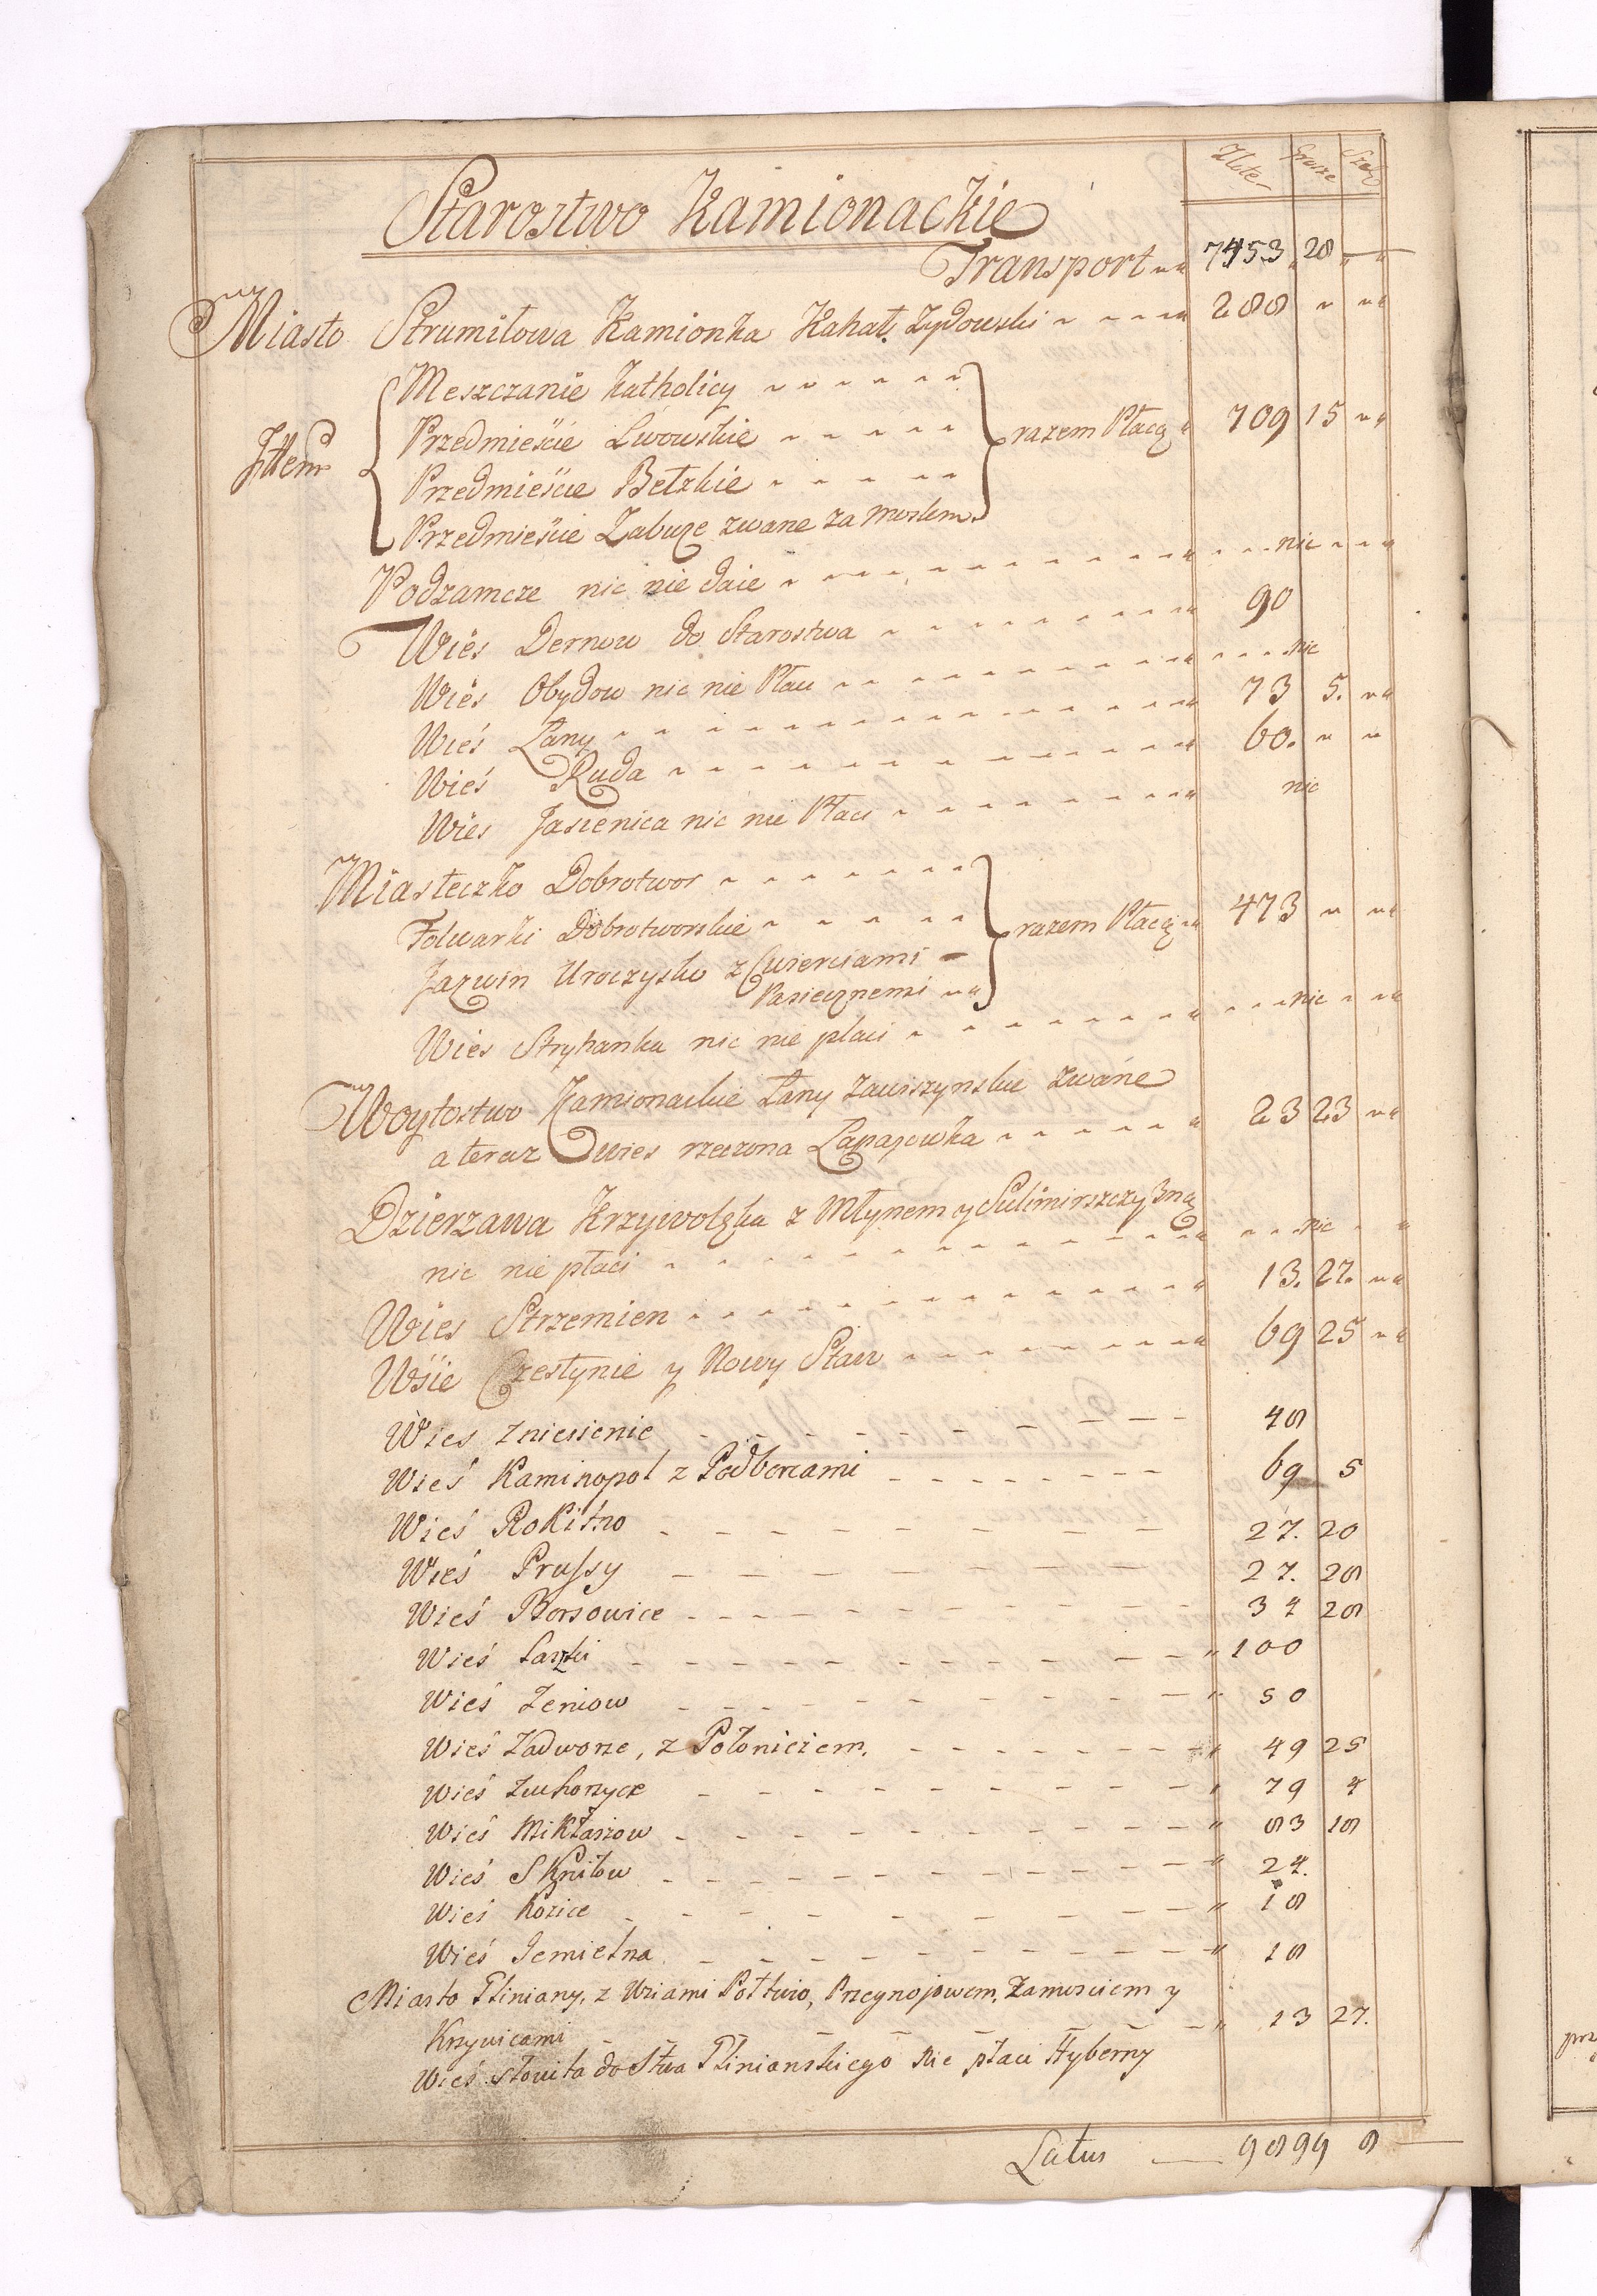 Złote Grosze Szelą
Starostwo Kamionackie
Transport 7453 28
Miasto Strumiłowa Kamionka Kahał Zydowski 288
Meszczanie Katholicy
Przedmieście Lwowskie
Ittem razem Płacą 709 15
Przedmieście Bełzkie
Przedmieście Zabuże zwane za mostem
Podzamcze nic nie daie nic
Wieś Dernow do Starostwa 90
Wieś Obydow nic nie Płaci nic
Wieś Łany 73 5.
Wieś Ruda 60.
Wieś Jasienica nic nie Płaci nic
Miasteczko Dobrotwor
Folwarki Dobrotworskie razem Płacą 473
Jazwin Uroczysko z Cwierciami
Pasiecznemi
Wieś Stryhanka nic nie płaci nic
Woytostwo Kamionackie Łany Zawiszynskie zwane
a teraz wies rzeczona Łapajowka 23 23
Dzierzawa Krzywoląka z Młynem y Sulimirszczyzną
nic nie płaci nic
Wieś Strzemien 13. 27.
Wsie Czestynie y Nowy Staw 69 25
Wieś Zniesienie 48
Wieś Kaminopol z Podborcami 69 5
Wieś Rokitno 27. 20
Wieś Prussy 27. 28
Wieś Borsowice 34 28
Wieś Laszki 100
Wieś Zeniow 50
Wieś Zadworze, z Połoniciem, 49 25
Wieś Zuchorzyce 79 4
Wieś Mikłaszow 83 18
Wieś Skniłow 24.
Wieś Kozice 18
Wieś Jemielna 18
Miasto Gliniany, z Wsiami Połtwio, Przegnojowem, Zamosciem y
Krzywicami 13 27.
Wieś Słowita do Stwa Glinianskiego nie płaci Hyberny
Latus 9899 8